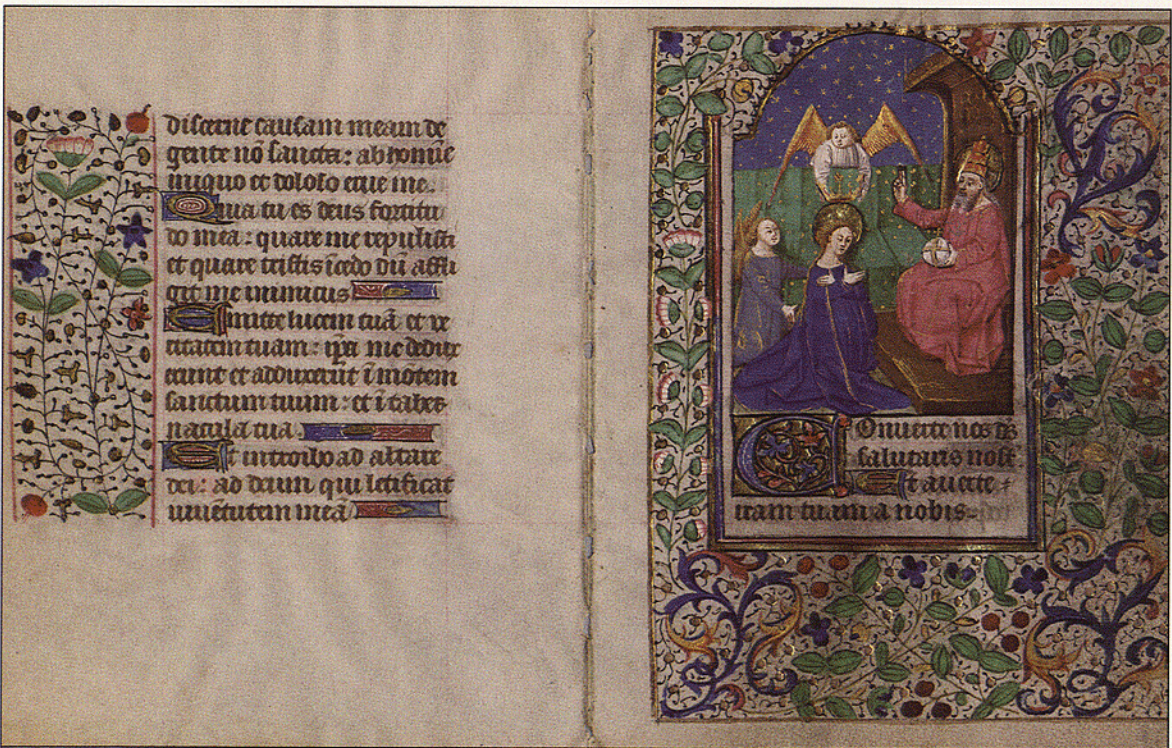 discerne causam meam de
gente nō sancta: ab homīe
iniquo et doloso erue me.
Quia tu es deus fortitu
do mea: quare me repulisti
et quare tristis īcedo dū affli
git me inimicus
Emitte lucem tuā et ve
ritatem tuam: ip̄a me dedux
erunt et adduxerūt ī mōtem
sanctum tuum: et ī taber
nacula tua
Et introibo ad altare
dei: ad deum qui letificat
iuuētutem meā
Conuerte nos dē
salutaris nost̄
Et auerte
iram tuam a nobis.